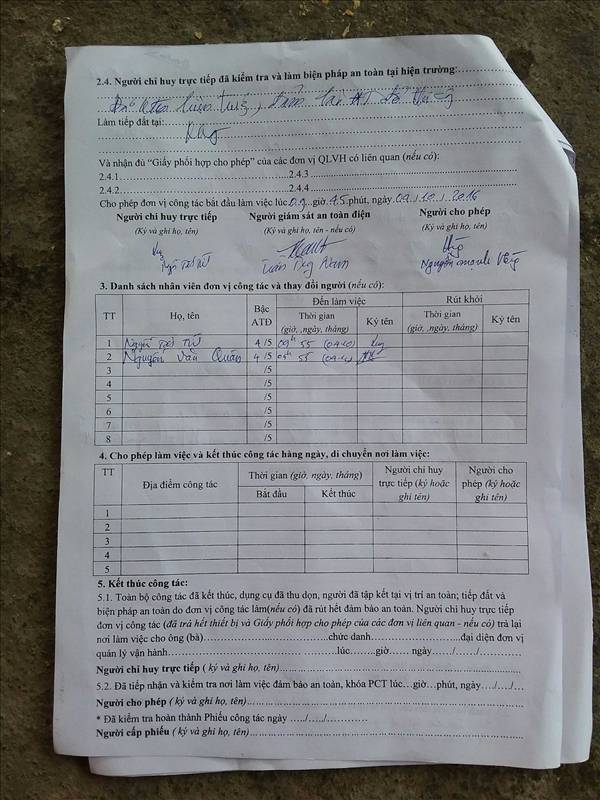 2.4. Người chỉ huy trực tiếp đã kiểm tra và làm biện pháp an toàn tại hiện trường:
Làm tiếp đất tại:
Và nhận đủ “Giấy phối hợp cho phép” của các đơn vị QLVH có liên quan (nếu có):
2.4.1 2.4.3
2.4.2 2.4.4
Cho phép đơn vị công tác bắt đầu làm việc lúc 09 giờ 45 phút, ngày 09/10/2016
Người chỉ huy trực tiếp Người giám sát an toàn điện Người cho phép
(Ký và ghi họ, tên) (Ký và ghi họ, tên - nếu có) (Ký và ghi họ, tên)
Nguyễn Mạnh
3. Danh sách nhân viên đơn vị công tác và thay đổi người (nếu có):
TT Họ, tên Bậc ATĐ Đến làm việc Rút khỏi
Thời gian (giờ, ,ngày, tháng) Ký tên Thời gian (giờ, ,ngày, tháng) Ký tên
1 4/5 09h 55
2 Nguyễn Văn Quân 4/5 09h 55
3 /5
4 /5
5 /5
6 /5
7 /5
8 /5
4. Cho phép làm việc và kết thúc công tác hàng ngày, di chuyển nơi làm việc:
TT Địa điểm công tác Thời gian (giờ, ngày, tháng) Người chỉ huy trực tiếp (ký hoặc ghi tên) Người cho phép (ký hoặc ghi tên)
Bắt đầu Kết thúc
1
2
3
4
5
5. Kết thúc công tác:
5.1. Toàn bộ công tác đã kết thúc, dụng cụ đã thu dọn, người đã tập kết tại vị trí an toàn; tiếp đất và
biện pháp an toàn do đơn vị công tác làm(nếu có) đã rút hết đảm bảo an toàn. Người chỉ huy trực tiếp
đơn vị công tác (đã trả hết thiết bị và Giấy phối hợp cho phép của các đơn vị liên quan - nếu có) trả lại
nơi làm việc cho ông (bà) chức danh đại diện đơn vị
quản lý vận hành lúc.......giờ....... ngày....../....../............
Người chỉ huy trực tiếp ( ký và ghi họ, tên)
5.2. Đã tiếp nhận và kiểm tra nơi làm việc đảm bảo an toàn, khóa PCT lúc...giờ...phút, ngày..../..../...
Người cho phép ( ký và ghi họ, tên)
* Đã kiểm tra hoàn thành Phiếu công tác ngày ...../...../............
Người cấp phiếu ( ký và ghi họ, tên)